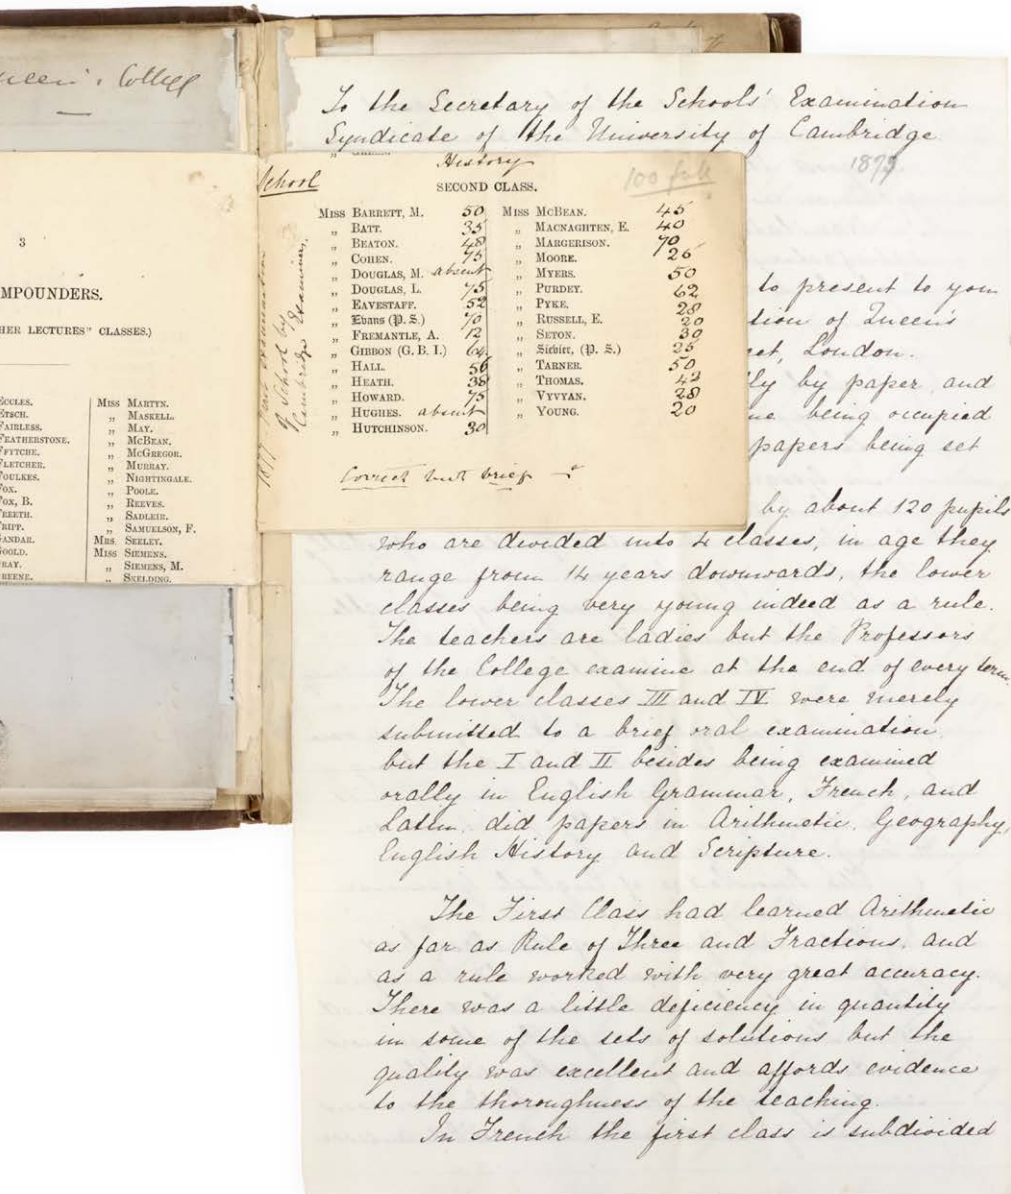 Queen's College
3
MPOUNDERS.
HER LECTURES" CLASSES.)
ECCLES.
ETSCH.
FAIRLESS.
FEATHERSTONE.
FFYTCHE.
FLETCHER.
FOULKES.
FOX.
FOX, B.
FREETH.
FRIPP.
GANDAR.
GOOLD.
GRAY.
GREENE.
MISS MARTYN.
„ MASKELL.
„ MAY.
„ MCBEAN.
„ MCGREGOR.
„ MURRAY.
„ NIGHTINGALE.
„ POOLE.
„ REEVES.
„ SADLEIR.
„ SAMUELSON, F.
MRS. SEELEY.
MISS SIEMENS.
„ SIEMENS, M.
„ SKELDING.
School
1877
of School by
Cambridge Examiners.
History
SECOND CLASS.
100 full
MISS BARRETT, M. 50
„ BATT. 35
„ BEATON. 48
„ COHEN. 75
„ DOUGLAS, M. absent
„ DOUGLAS, L. 75
„ EAVESTAFF. 52
„ Evans (P. S.) 70
„ FREMANTLE, A. 12
„ GIBBON (G. B. I.) 64
„ HALL. 56
„ HEATH. 38
„ HOWARD. 75
„ HUGHES. absent
„ HUTCHINSON. 30
MISS MCBEAN. 45
„ MACNAGHTEN, E. 40
„ MARGERISON. 70
„ MOORE. 26
„ MYERS. 50
„ PURDEY. 62
„ PYKE. 28
„ RUSSELL, E. 20
„ SETON. 30
„ Siebier, (P. S.) 25
„ TARNER. 50
„ THOMAS. 42
„ VYVYAN. 28
„ YOUNG. 20
Correct but brief
To the Secretary of the Schools' Examination
Syndicate of the University of Cambridge
to present to you
tion of Queen's
eet, London.
ly by paper and
me being occupied
papers being set
by about 120 pupils
who are divided into 4 classes, in age they
range from 14 years downwards, the lower
classes being very young indeed as a rule.
The teachers are ladies but the Professors
of the College examine at the end of every term.
The lower classes III and IV were merely
submitted to a brief oral examination,
but the I and II besides being examined
orally in English Grammar, French, and
Latin, did papers in Arithmetic, Geography,
English History and Scripture.
The First Class had learned Arithmetic
as far as Rule of Three and Fractions, and
as a rule worked with very great accuracy.
There was a little deficiency in quantity
in some of the sets of solutions but the
quality was excellent and affords evidence
to the thoroughness of the teaching.
In French the first class is subdivided